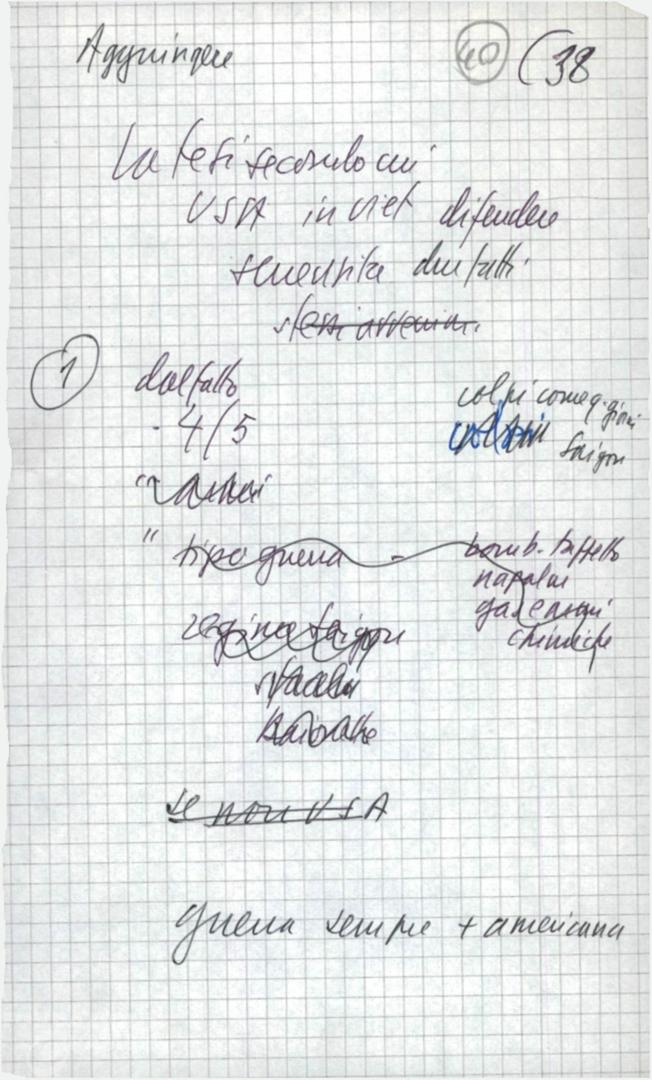 Aggiungere
40 (38
La tesi secondo cui
USA in viet difendere
smentita dai fatti
stessi avvenim.
1 dal fatto
- 4/5
colpi come q. giorni
Saigon
"
" tipo guerra - bomb. tappeto
napalm
gas e armi
chimiche
regime Saigon
se non USA
guerra sempre + americana